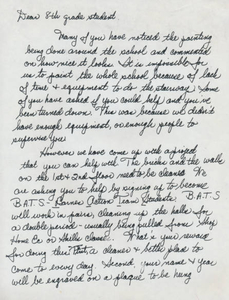 Dear 8th grade student.
Many of you have noticed the painting
being done around the school and commented
on how neat it looks. It is impossible for
us to paint the whole school because of lack
of time & equipment to do the stairway. Some
of you have asked if you could help and you've
been turned down. This was because we didn't
have enough equipment, or enough people to
supervise you.
However we have come up with a project
that you can help with. The bricks and the walls
on the 1st & 2nd floor need to be cleaned. We
are asking you to help by signing up to become
B.A.T.S. Barnes Action Team Students. B.A.T.S
will work in pairs, cleaning up the halls for
a double period - usually being pulled from Shop
Home Ec or classes. What is your reward
for doing this? First a cleaner & better place to
come to every day. Second your name & year
will be engraved on a plaque to be hung